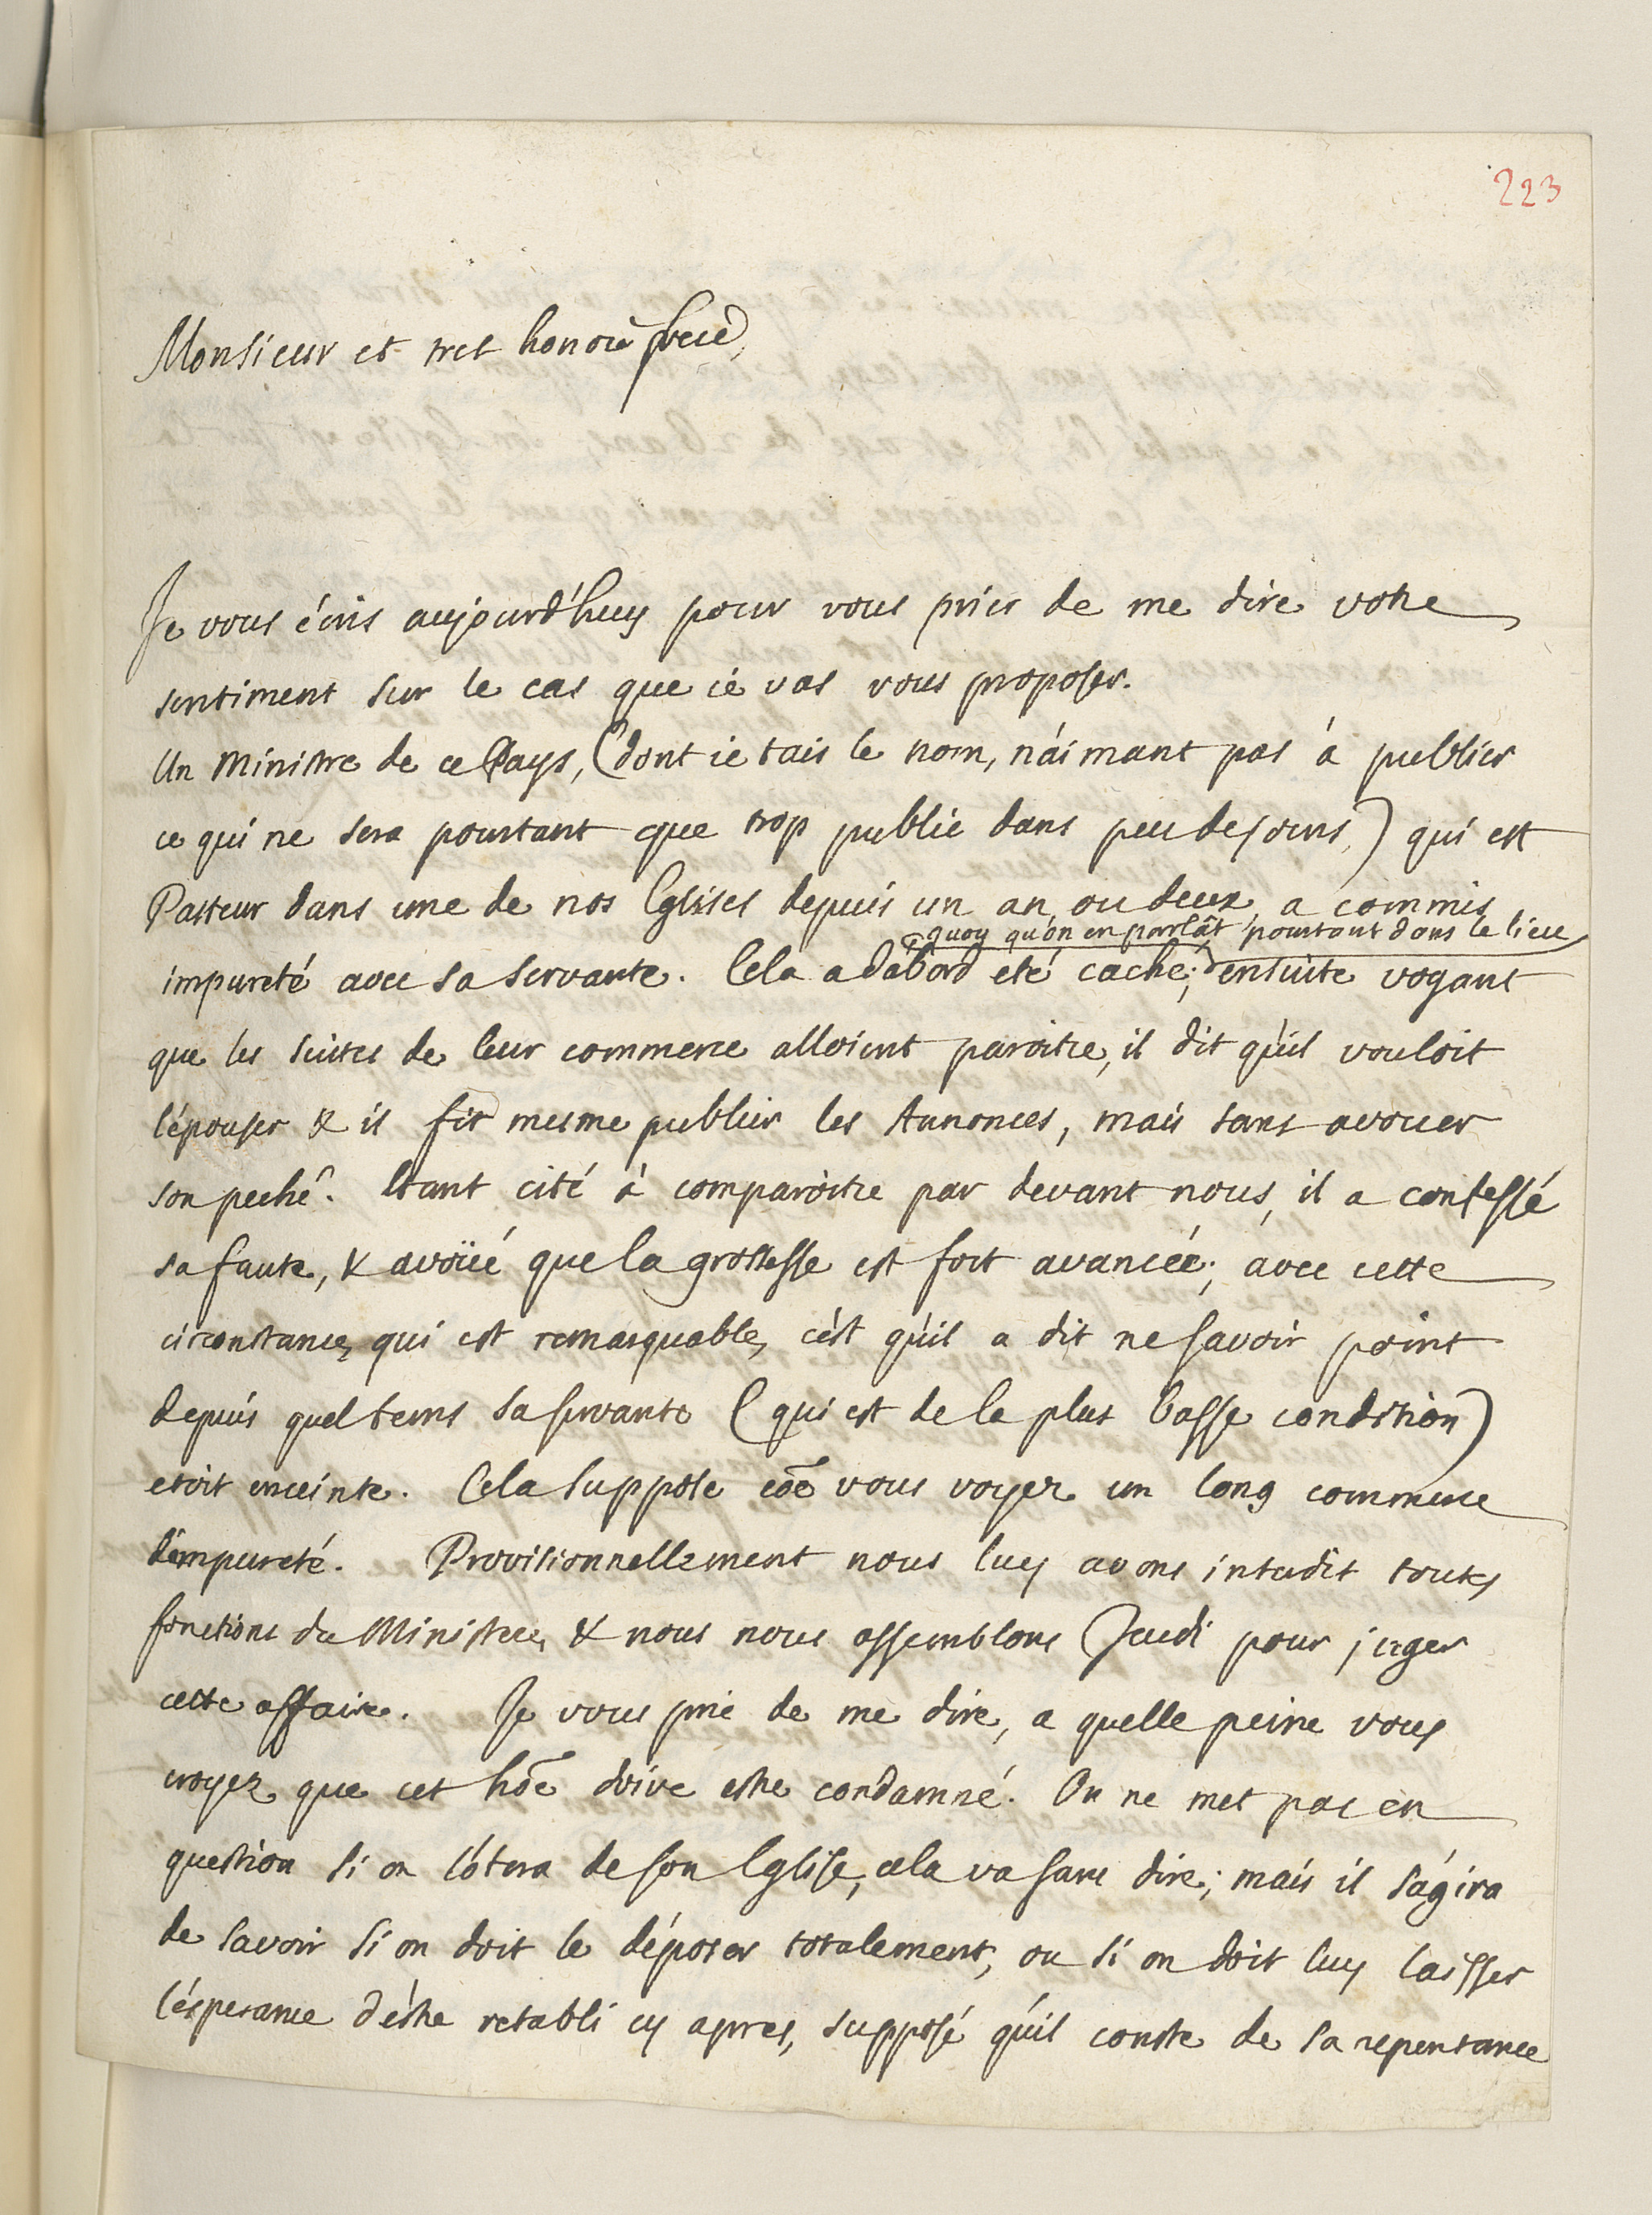 223
Monsieur et tres honoré frere,
Je vous écris aujourd'huy pour vous prier de me dire votre
sentiment sur le cas que ie vas vous proposer.
Un Ministre de ce Pays, (dont ie tais le nom, n'aimant pas à publier
ce qui ne sera pourtant que trop public dans peu de jours,) qui est
Pasteur dans une de nos Eglises depuis un an ou deux, a commis
quoy qu'on en parlât pourtant dans le lieu
impureté avec sa servante. Cela a dabord eté caché; ensuite voyant
que les suites de leur commerce alloient paroitre, il dit qu'il vouloit
l'épouser & il fit mesme publier les Annonces, mais sans avouer
son peché. Etant cité à comparoitre par devant nous, il a confessé
sa faute, & avoüé que la grossesse est fort avancée; avec cette
circonstance, qui est remarquable, c'est qu'il a dit ne savoir point
depuis quel tems sa servante (qui est de la plus basse condition)
etoit enceinte. Cela suppose cōe vous voyez un long commerce
d'impureté. Provisionnellement nous luy avons interdit toutes
fonctions du Ministere, & nous nous assemblons Jeudi pour juger
cette affaire. Je vous prie de me dire, a quelle peine vous
croyez que cet hōe doive estre condamné. On ne met pas en
question si on l'ôtera de son Eglise, cela va sans dire; mais il s'agira
de savoir si on doit le déposer totalement, ou si on doit luy laisser
l'ésperance d'éstre retabli cy apres, supposé qu'il conste de sa repentance